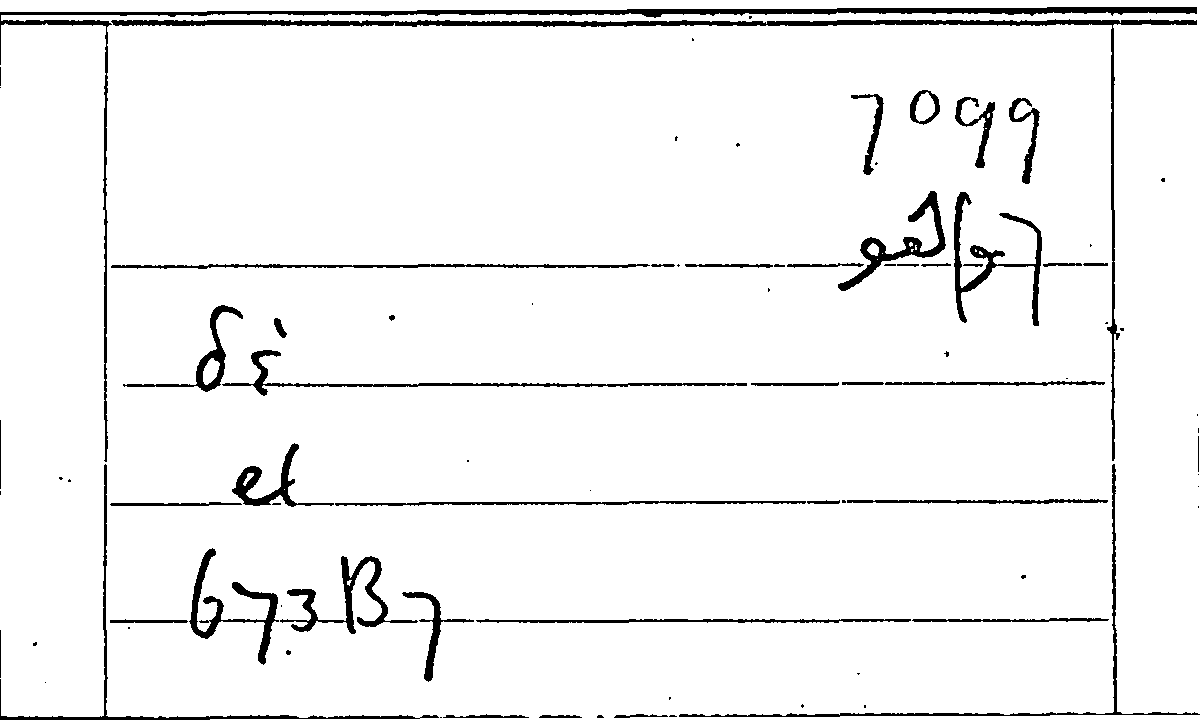 7099
δὲ
et
673B7